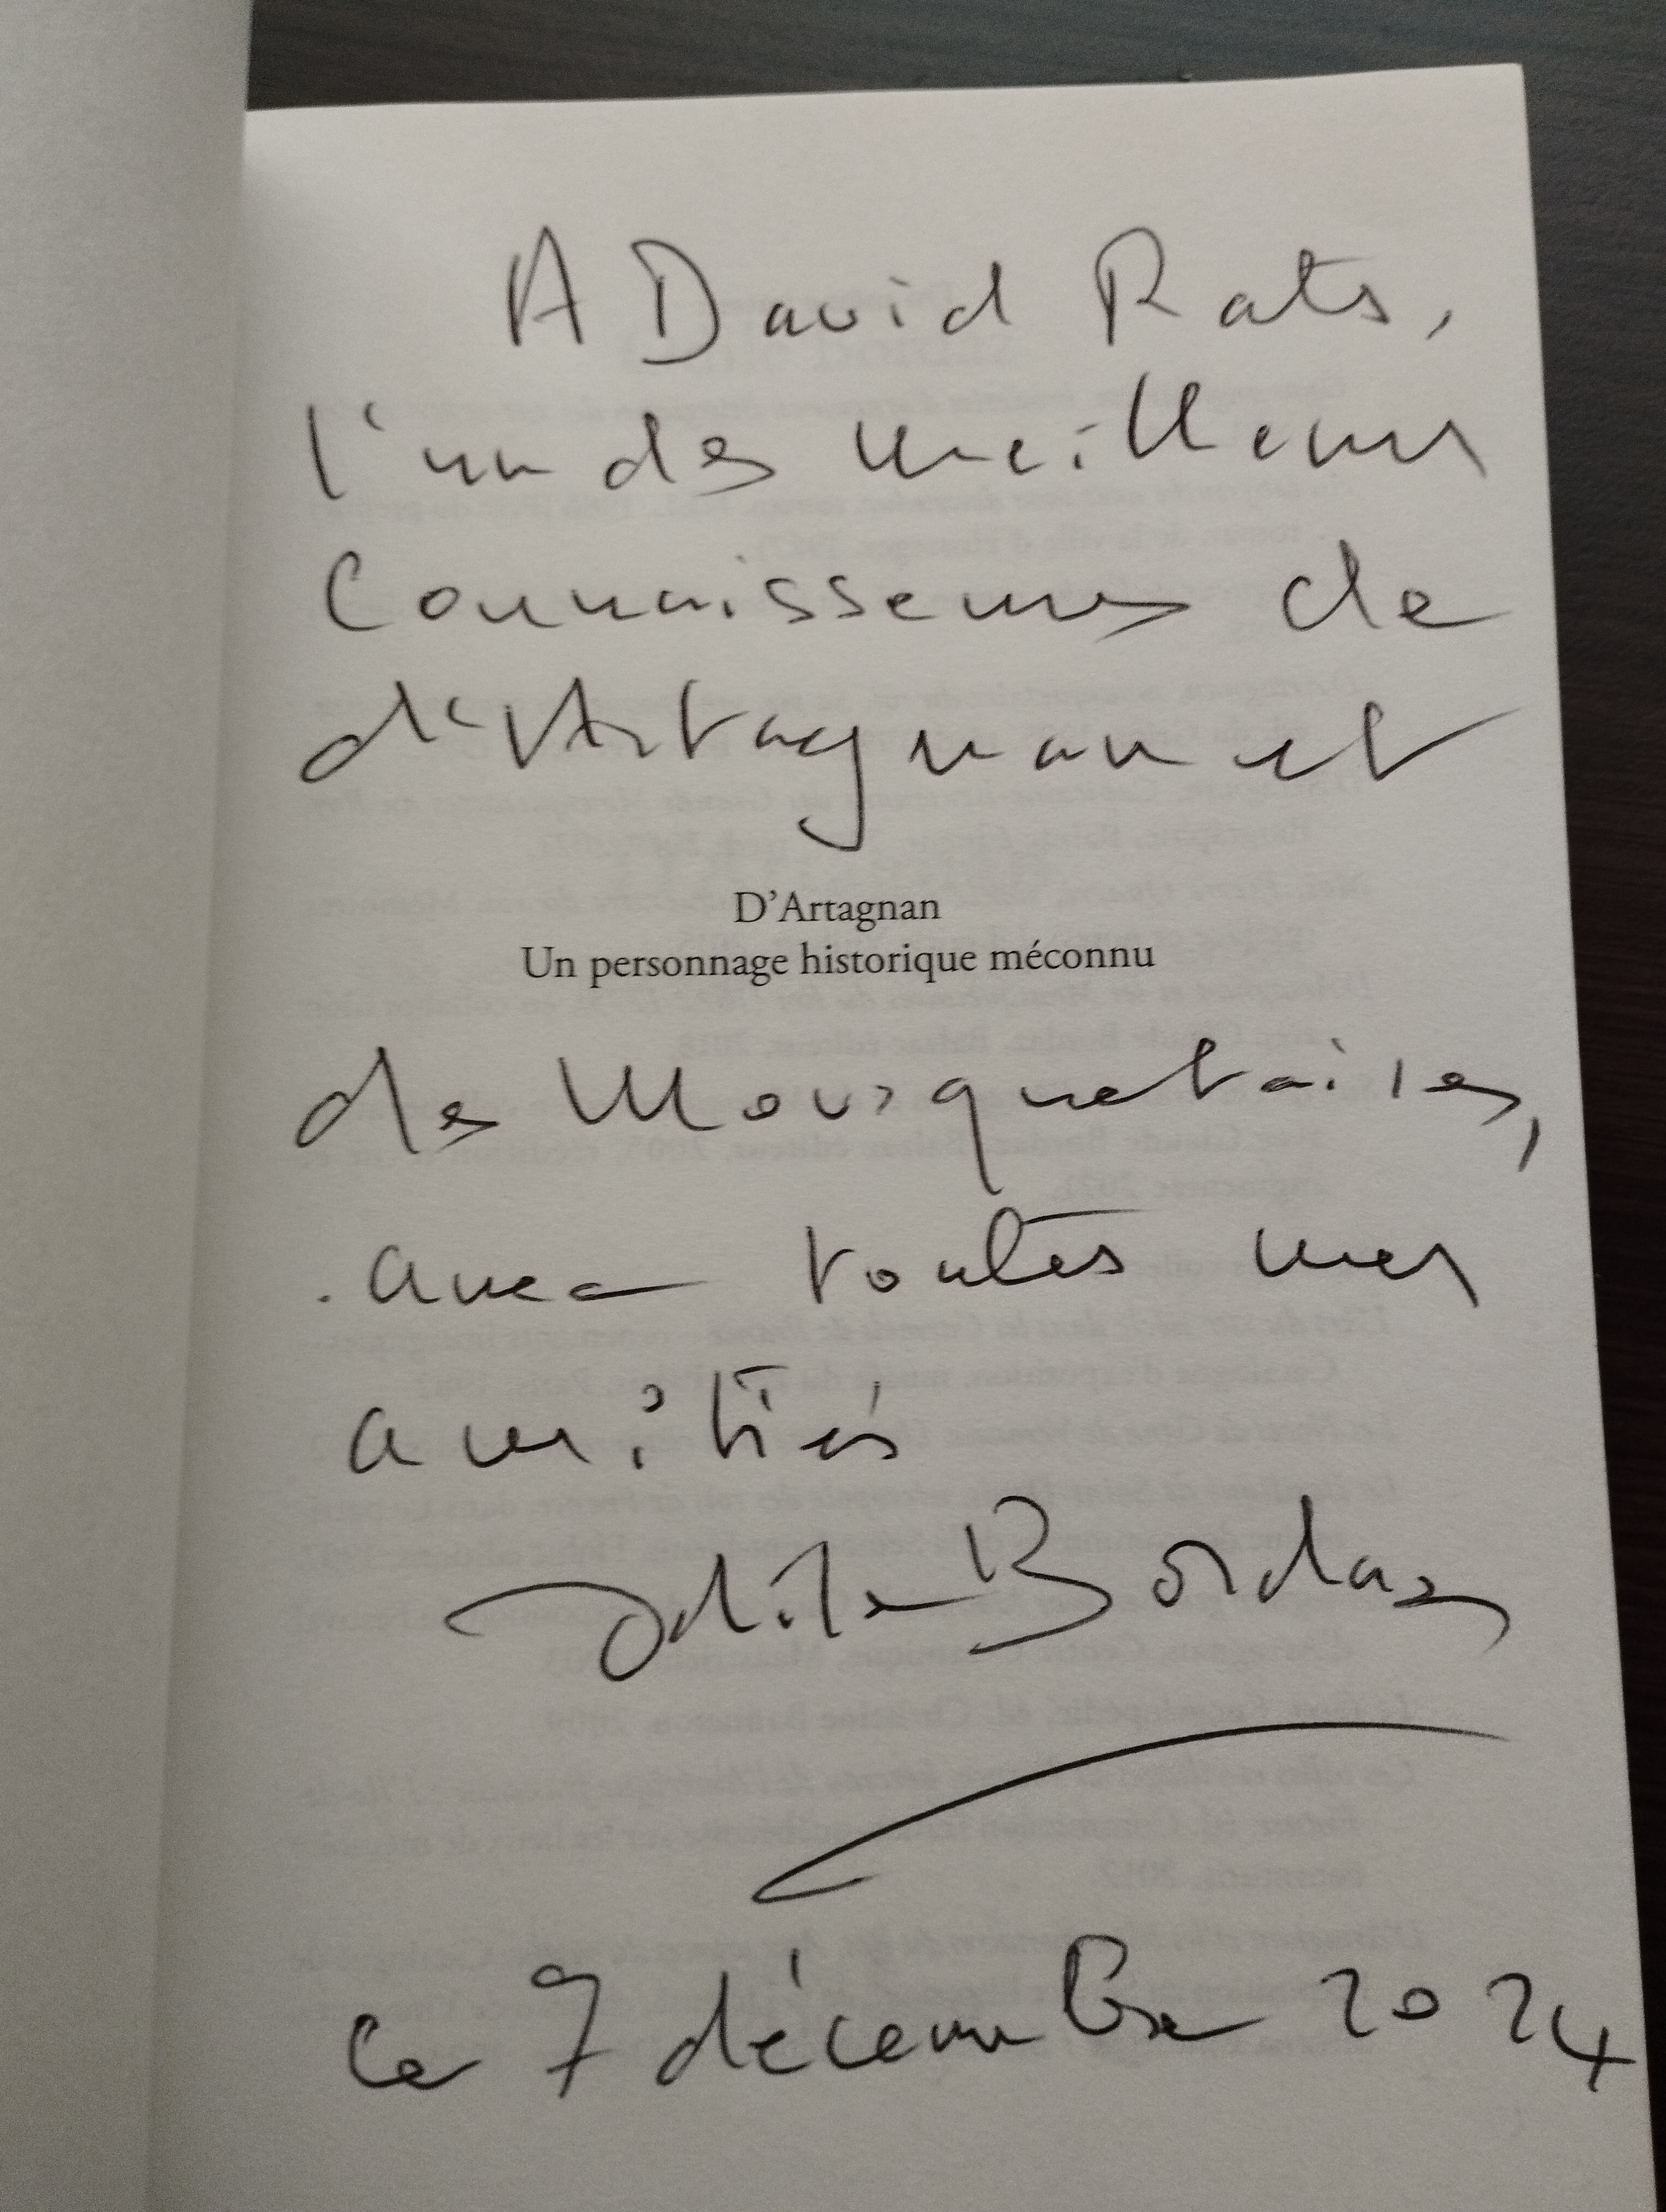 A David Rats,
l'un des meilleurs
connaisseurs de
d'Artagnan et
D'Artagnan
Un personnage historique méconnu
des Mousquetaires,
avec toutes mes
amitiés
Odile Bordaz
ce 7 décembre 2024